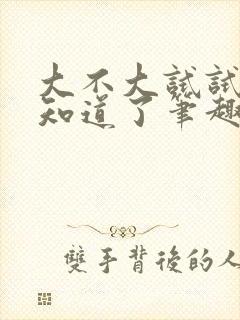 大不大試試
知道了筆趣
雙手背後的人